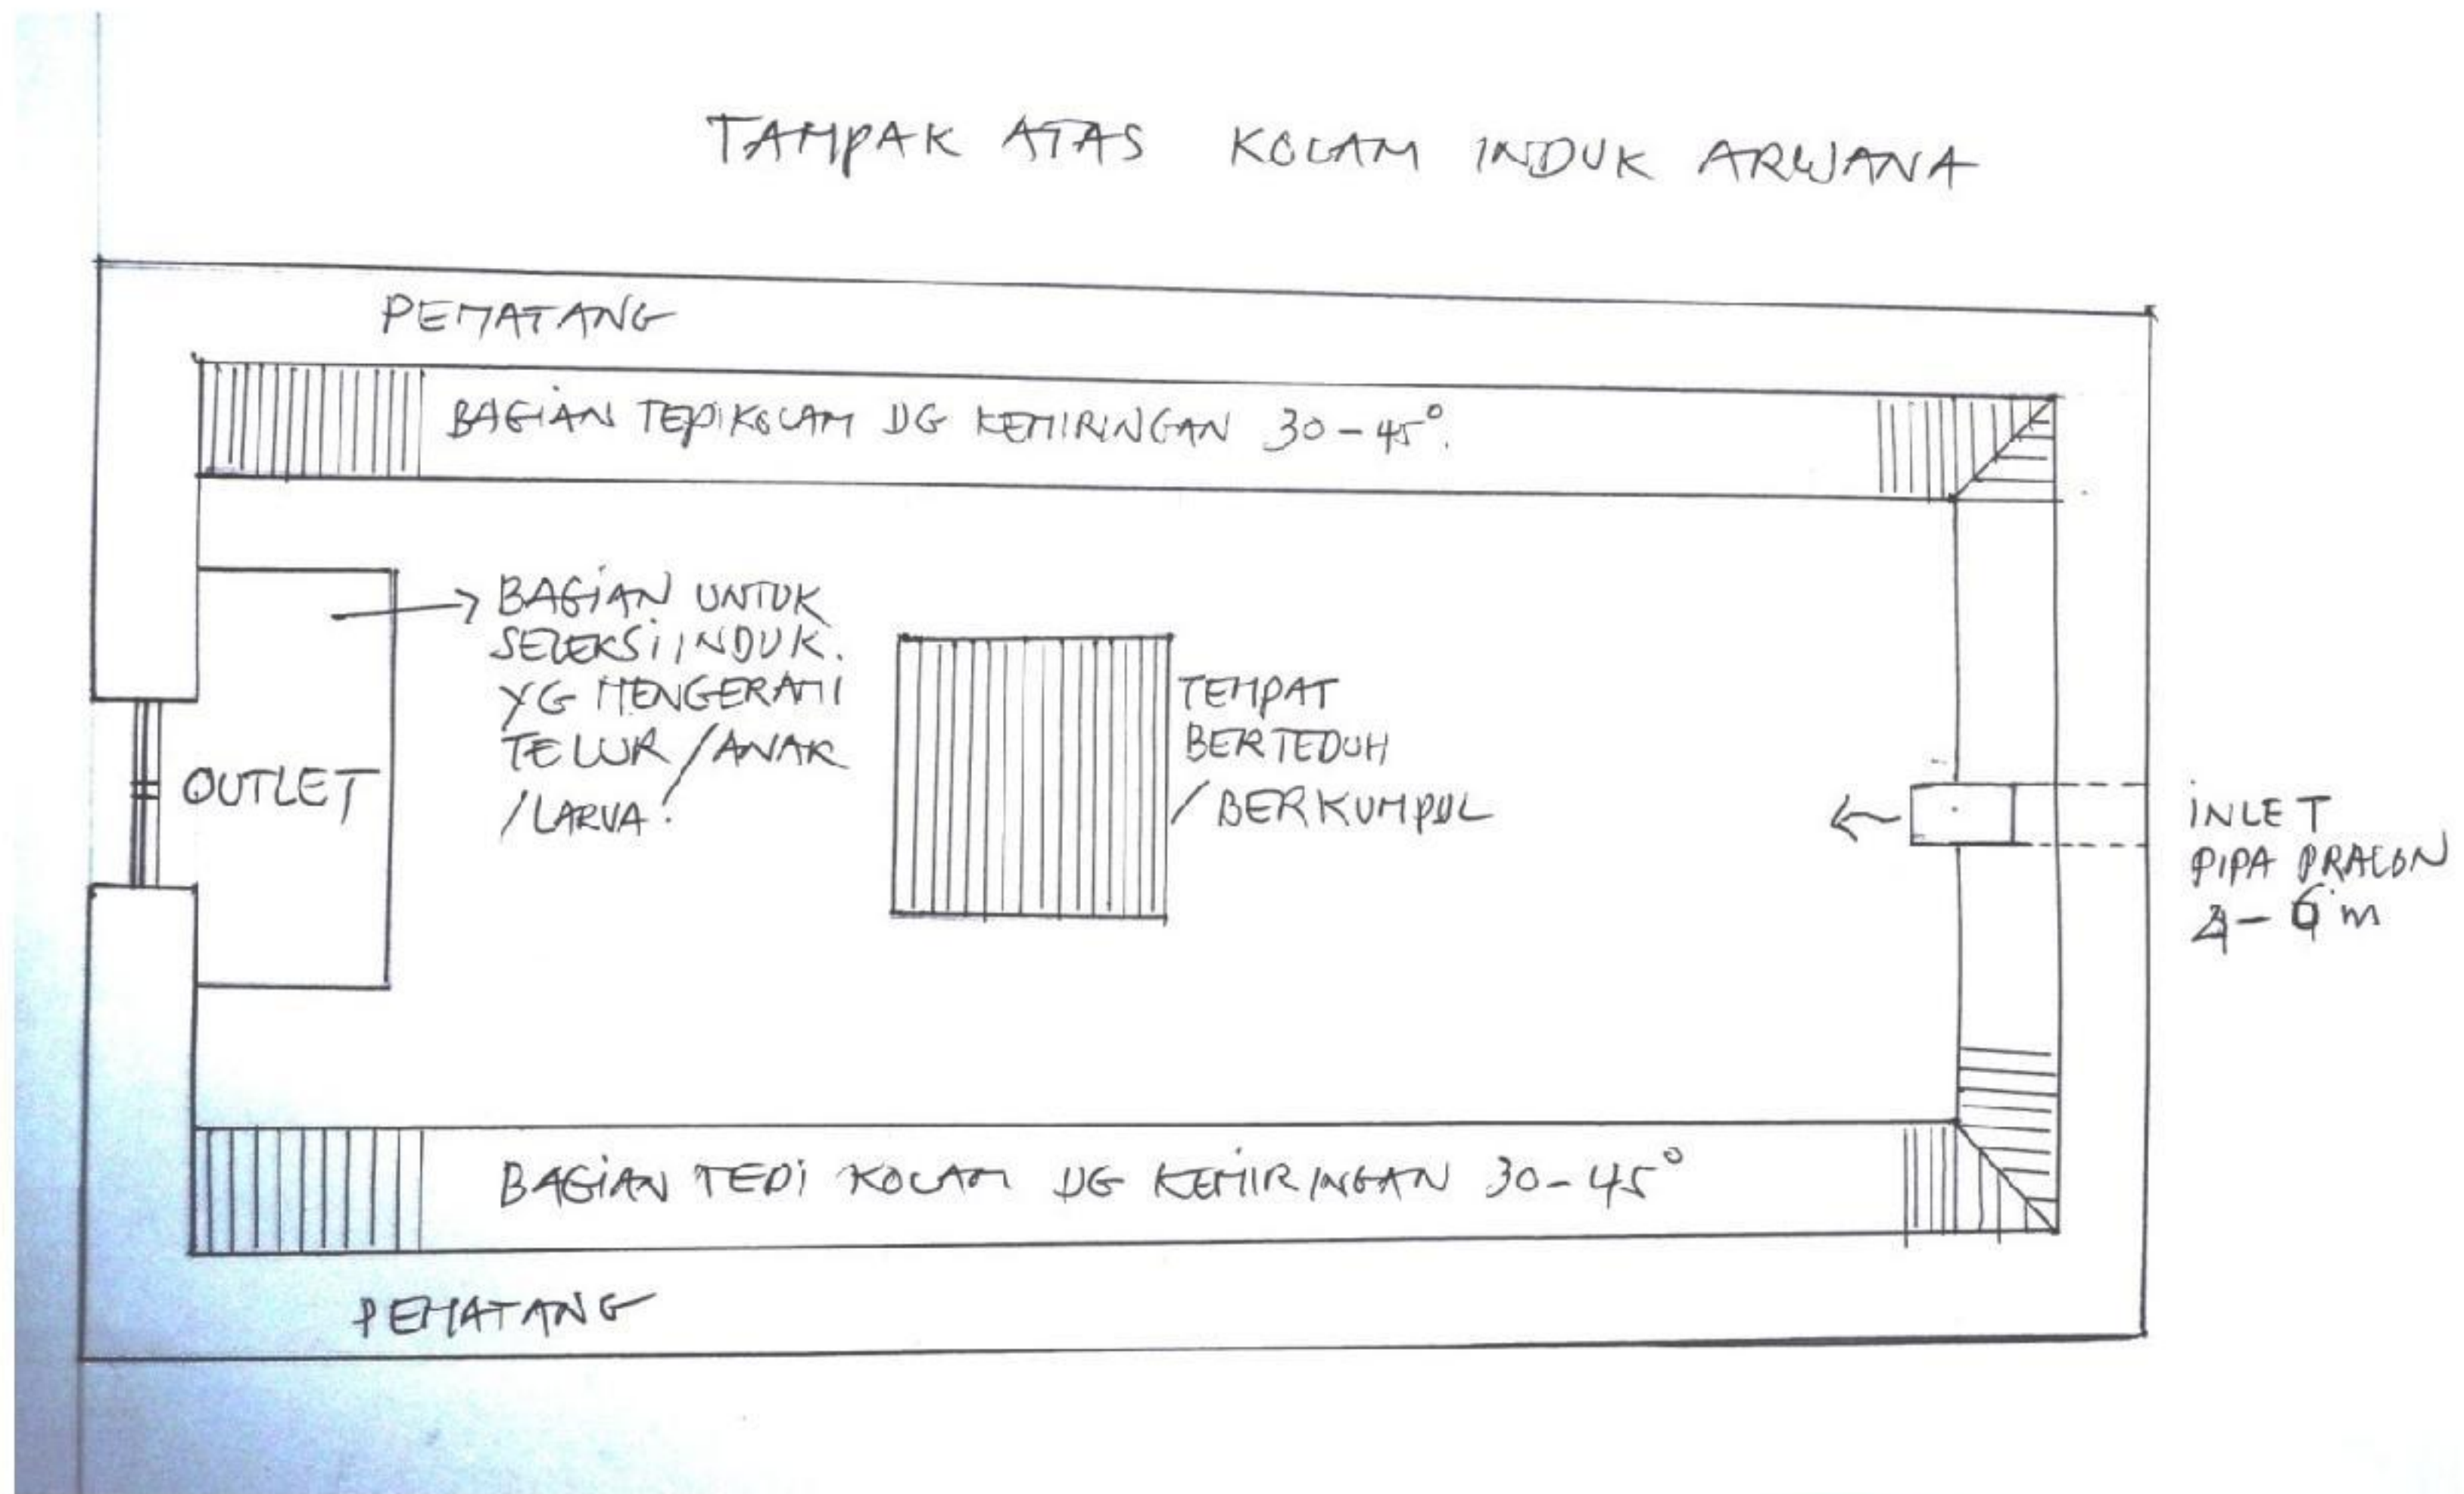 TAMPAK ATAS KOLAM INDUK ARWANA
PEMATANG
BAGIAN TEPI KOLAM DG KEMIRINGAN 30-45°.
BAGIAN UNTUK
SELEKSI INDUK.
YG MENGERAMI
TELUR/ANAK
/LARVA.
OUTLET
TEMPAT
BERTEDUH
/BERKUMPUL
INLET
PIPA PRALON
4-6 m
BAGIAN TEPI KOLAM DG KEMIRINGAN 30-45°
PEMATANG